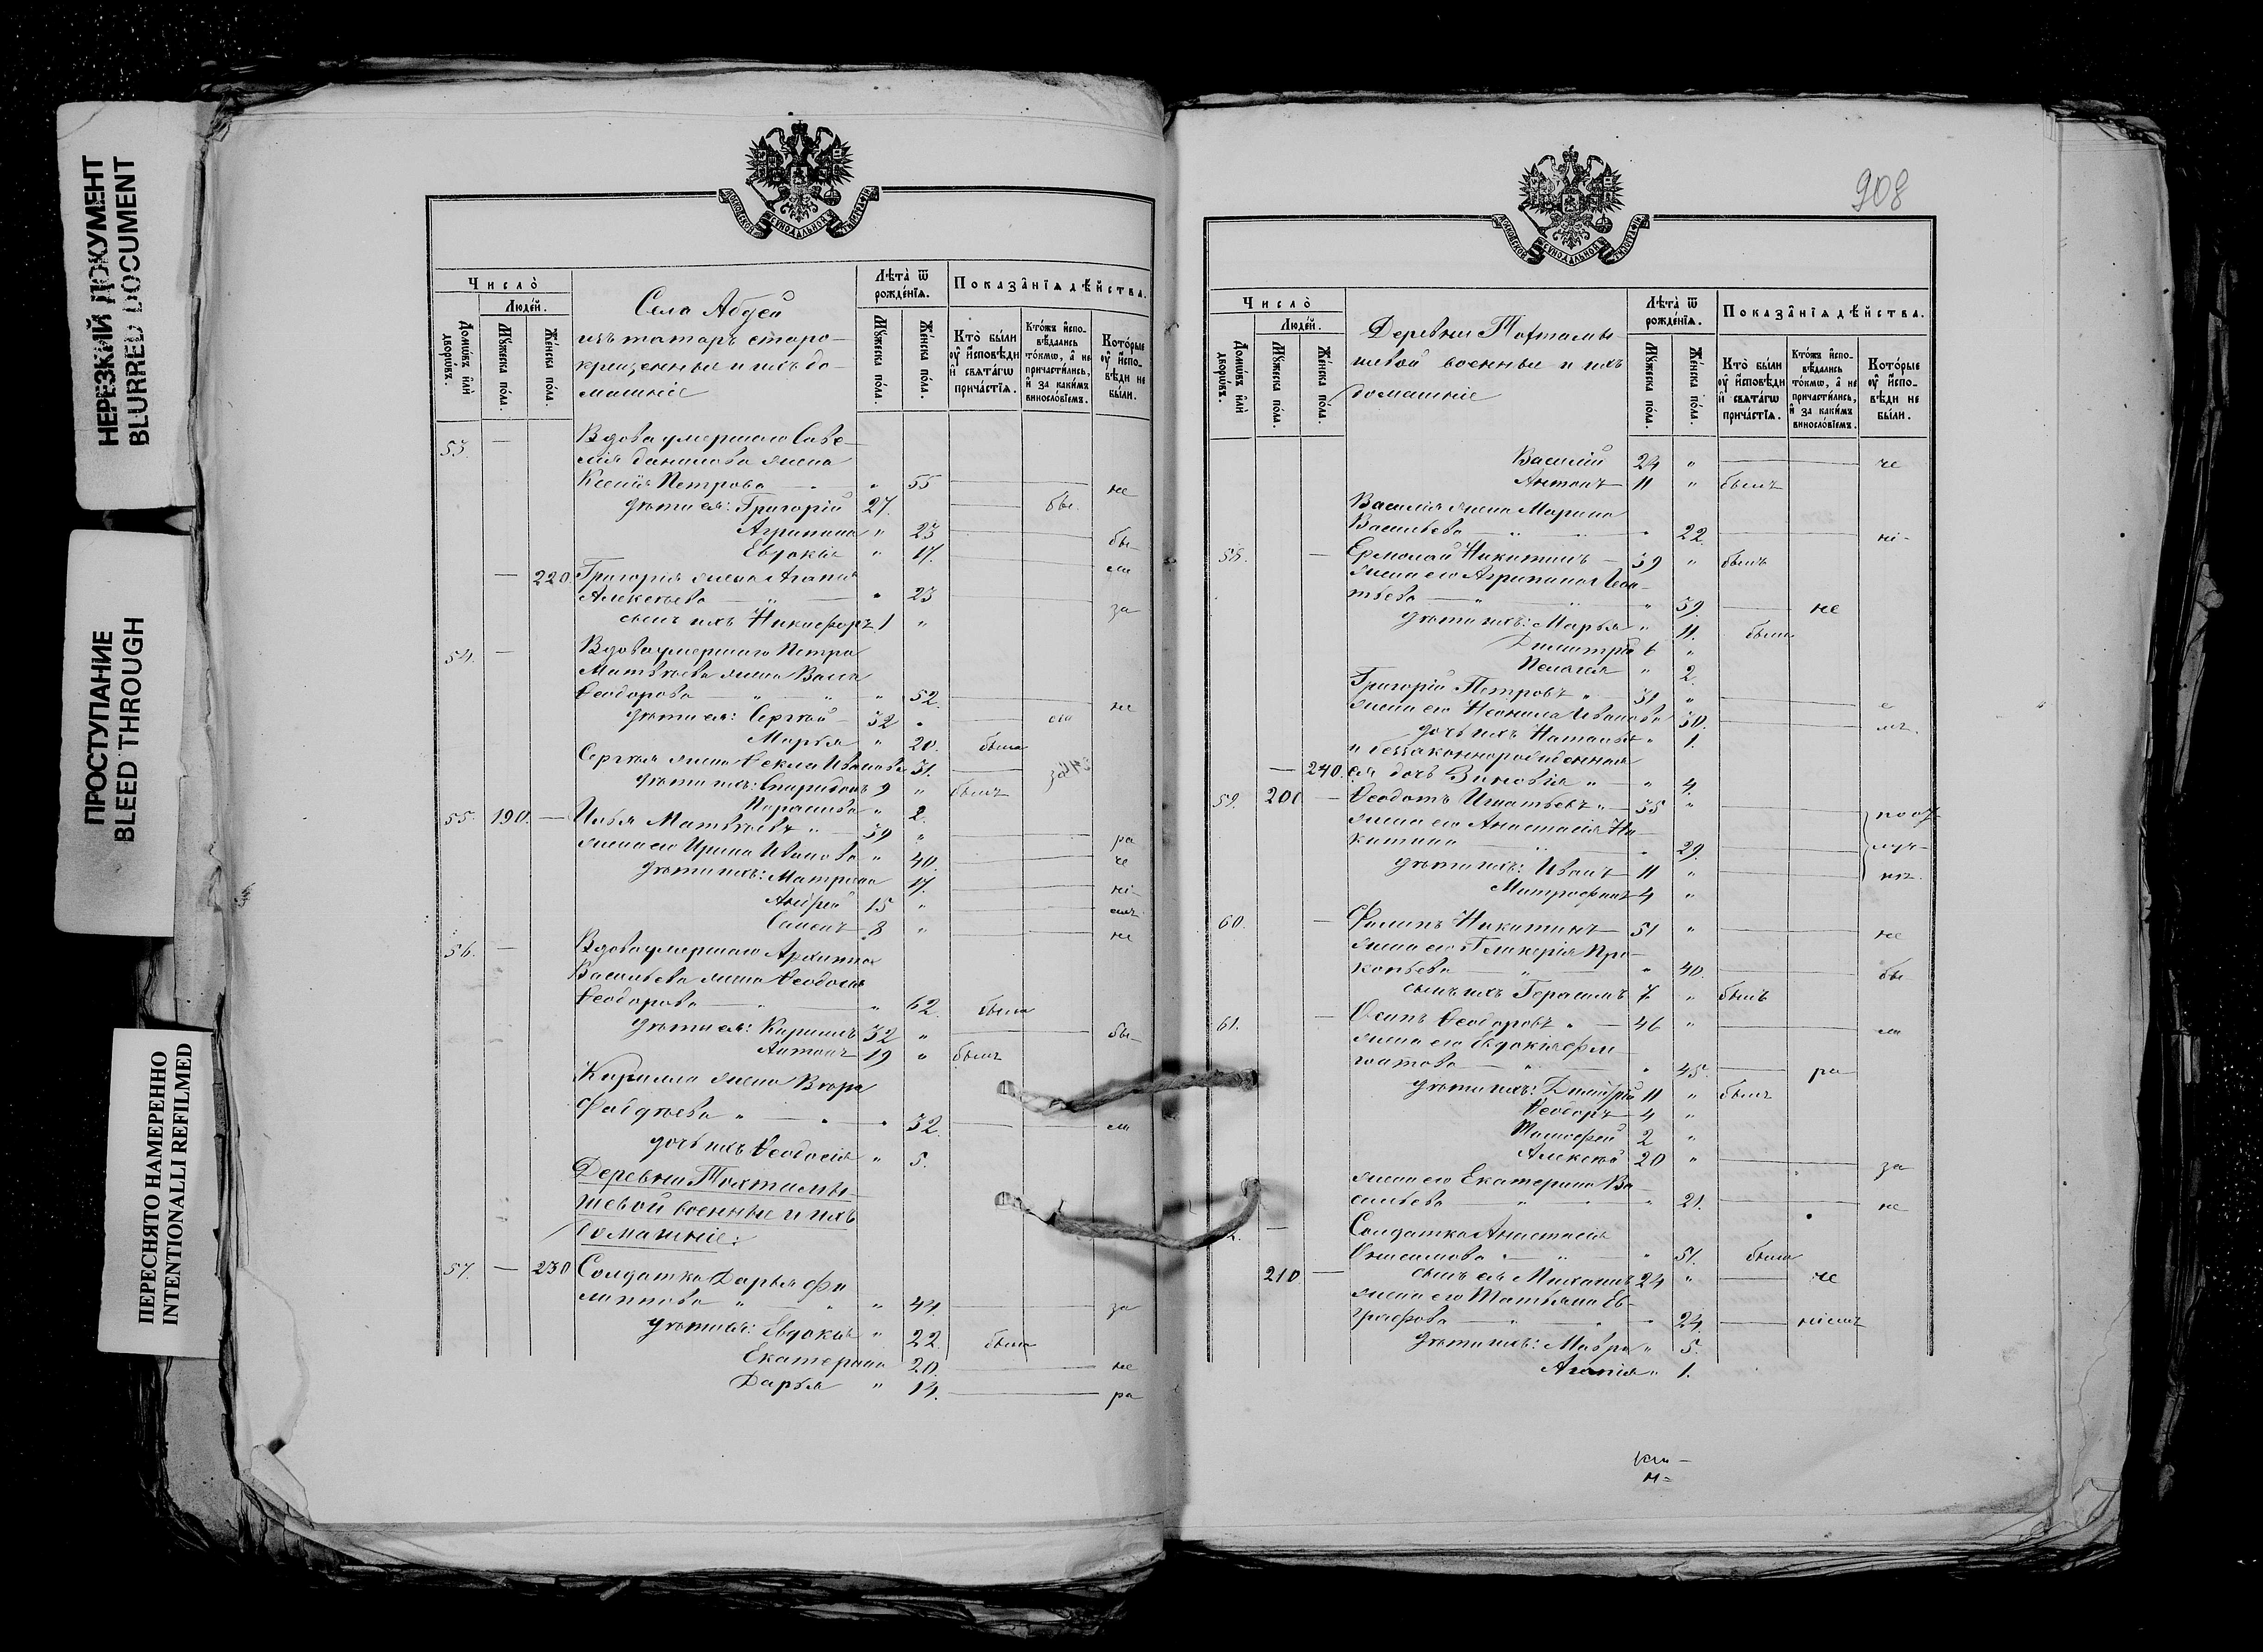 НЕРЕЗКИЙ ДОКУМЕНТ
BLURRED DOCUMENT
ПРОСТУПАНИЕ
BLEED THROUGH
ПЕРЕСНЯТО НАМЕРЕННО
INTENTIONALLI REFILMED
Число̀
Люде́й.
Домѡ́въ и҆лѝ дворѡ́въ.
Мꙋ́жеска по́ла.
Же́нска по́ла.
Села Абдей
изъ татаръ старо-
крещенные и ихъ до-
машніе
Лѣта̀ ѿ
рожде́нїѧ.
Мꙋ́жеска по́ла.
Же́нска по́ла.
Показа̑нїѧ дѣ́йства.
Кто̀ бы́ли
оу҆ и҆сповѣ́ди
и҆ свѧта́гѡ
прича́стїѧ.
Кто́жъ и҆спо-
вѣ́дались
то́кмѡ, а҆ не
причасти́лись,
и҆ за каки́мъ
винослѡ́вїемъ.
Кото́рые
оу҆ и҆спо-
вѣ́ди не
бы́ли.
53. — Вдова умершаго Саве-
лія Данилова жена
Ксенія Петрова — " 55 не
дѣти ея: Григорій 27. бы
Агрипина " 23 бы
Евдокія " 17. ли
— 220. Григорія жена Агапія
Алексѣева — " 23 за
сынъ ихъ Никифоръ 1 "
54. — Вдова умершаго Петра
Матвѣева жена Васса
Ѳеодорова — " 52. не
дѣти ея: Сергѣй — 32 "
Марѳа " 20. была
Сергѣя жена Ѳекла Иванова 31. за
дѣти ихъ: Спиридонъ 9 " былъ
Параскева " 2.
55. 190. — Илья Матвѣевъ " — 39 " ра
жена его Ирина Иванова " 40. че
дѣти ихъ: Матрона 17. ні-
Андрей 15 " емъ
Самсонъ 8 " не
56. — Вдова умершаго Архиппа
Васильева жена Ѳеодосія
Ѳеодорова — " 62. была
дѣти ея: Кириллъ 32 " бы-
Антонъ 19 " былъ
Кирилла жена Вѣра
Фаддѣева " — " 32. ли
дочь ихъ Ѳеодосія " 5.
Деревни Тохтамы-
шевой военные и ихъ
домашніе:
57. — 230 Солдатка Дарья Фи
липпова " — " 44. за
дѣти ея: Евдокія " 22. была
Екатерина 20. не
Дарья " 14. ра
908
Число̀
Люде́й.
Домѡ́въ и҆лѝ дворѡ́въ.
Мꙋ́жеска по́ла.
Же́нска по́ла.
Деревни Тохтамы-
шевой военные и ихъ
домашніе
Лѣта̀ ѿ
рожде́нїѧ.
Мꙋ́жеска по́ла.
Же́нска по́ла.
Показа̑нїѧ дѣ́йства.
Кто̀ бы́ли
оу҆ и҆сповѣ́ди
и҆ свѧта́гѡ
прича́стїѧ.
Кто́жъ и҆спо-
вѣ́дались
то́кмѡ, а҆ не
причасти́лись,
и҆ за каки́мъ
винослѡ́вїемъ.
Кото́рые
оу҆ и҆спо-
вѣ́ди не
бы́ли.
Василій 24 " че
Антонъ 11 " былъ
Василія жена Марина
Васильева — " 22. ні-
58. — Ермолай Никитинъ — 39 " былъ
жена его Агрипина Игна-
тьева — " 39. не
дѣти ихъ: Марья " 11. была
Димитрій 6 "
Пелагія " 2.
Григорій Петровъ " — 31 "
жена его Неонила Иванова 30.
дочь ихъ Наталья " 1.
и беззаконнорожденная
— 240. ея дочь Зиновія " — " 4.
59. 200 — Ѳеодотъ Игнатьевъ " — 35 " по от-
жена его Анастасія Ни-
китина — " 29. луч-
дѣти ихъ: Иванъ 11 " кѣ.
Митрофанъ 4 "
60. — Филипъ Никитинъ — 51 " не
жена его Гликерія Про-
копьева — " 40. бы
сынъ ихъ Герасимъ 7 " былъ
61. — Осипъ Ѳеодоровъ " — 46 " ли
жена его Евдокія
— " 45. ра
дѣти ихъ: Димитрій 11 " былъ
Ѳеодоръ — 4 "
Тимофей 2 "
Алексѣй 20 " за
жена его Екатерина Ва
сильева — " 21. не
— Солдатка Анастасія
Онисимова " — " 51. была
210 — сынъ ея Михаилъ 24 " че
жена его Татьяна Ев-
графова — " 24. ніемъ
дѣти ихъ: Мавра " 5.
Агапія " 1.